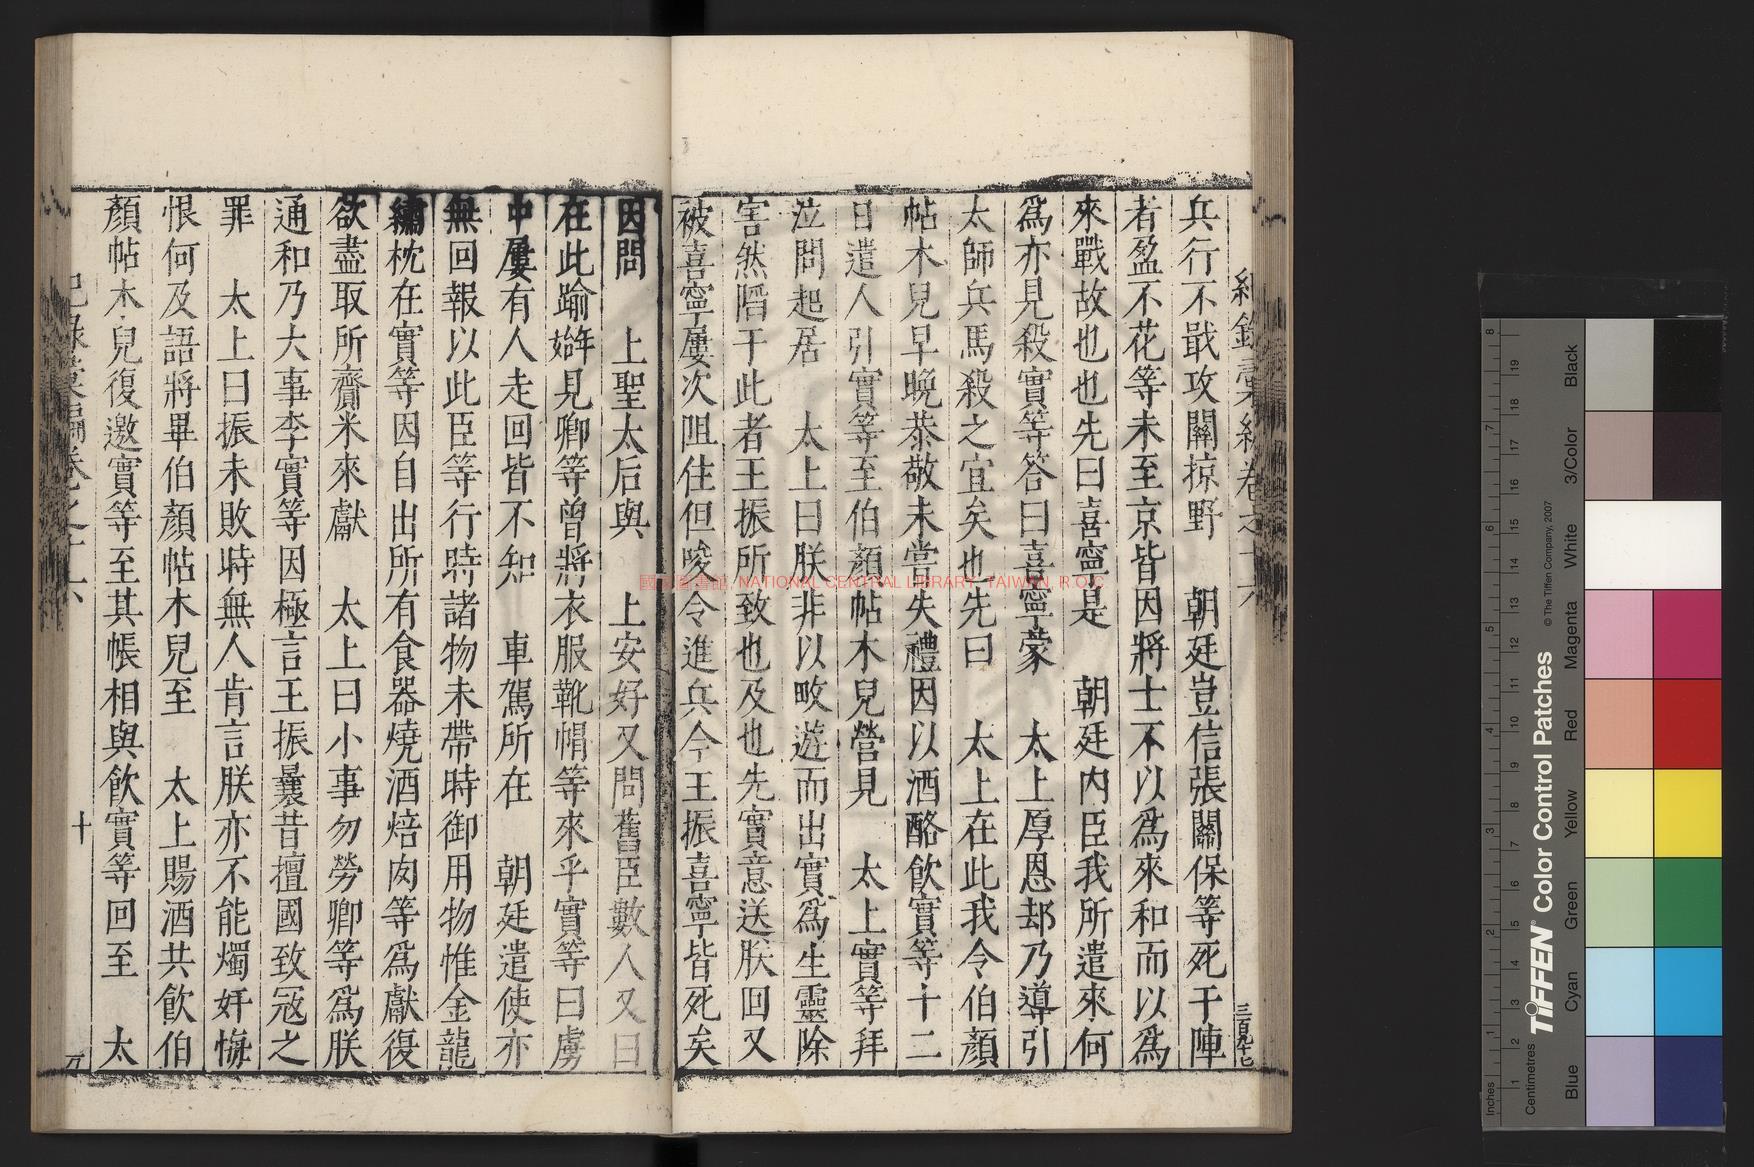 兵行不戢攻關掠野　朝廷豈信張關保等死于陣
者盈不花等未至京皆因將士不以爲來和而以爲
來戰故也也先曰喜寧是　朝廷内臣我所遣來何
爲亦見殺實等答曰喜寧蒙　太上厚恩却乃導引
太師兵馬殺之宜矣也先曰　太上在此我令伯顏
帖木兒早晚恭敬未嘗失禮因以酒酪飲實等十二
日遣人引實等至伯顏帖木兒營見　太上實等拜
泣問起居　太上曰朕非以畋遊而出實爲生靈除
害然陷于此者王振所致也及也先實意送朕回又
被喜寧屢次阻住但唆令進兵今王振喜寧皆死矣
因問　上聖太后與　上安好又問舊臣數人又曰
在此踰見卿等曾將衣服靴帽等來乎實等曰虜
中屢有人走回皆不知　車駕所在　朝廷遣使亦
無回報以此臣等行時諸物未帶時御用物惟金龍
繡枕在實等因自出所有食器燒酒焙肉等爲獻復
欲盡取所齎米來獻　太上曰小事勿勞卿等爲朕
通和乃大事李實等因極言王振曩昔擅國致寇之
罪　太上曰振未敗時無人肯言朕亦不能燭奸悔
恨何及語將畢伯顏帖木兒至　太上賜酒共飲伯
顏帖木兒復邀實等至其帳相與飲實等回至　太
紀錄彙編卷之十六
十
三百九十七
國家圖書館, NATIONAL CENTRAL LIBRARY, TAIWAN, R.O.C
TIFFEN® Color Control Patches
© The Tiffen Company, 2007
Blue
Cyan
Green
Yellow
Red
Magenta
White
3/Color
Black
Inches
Centimetres